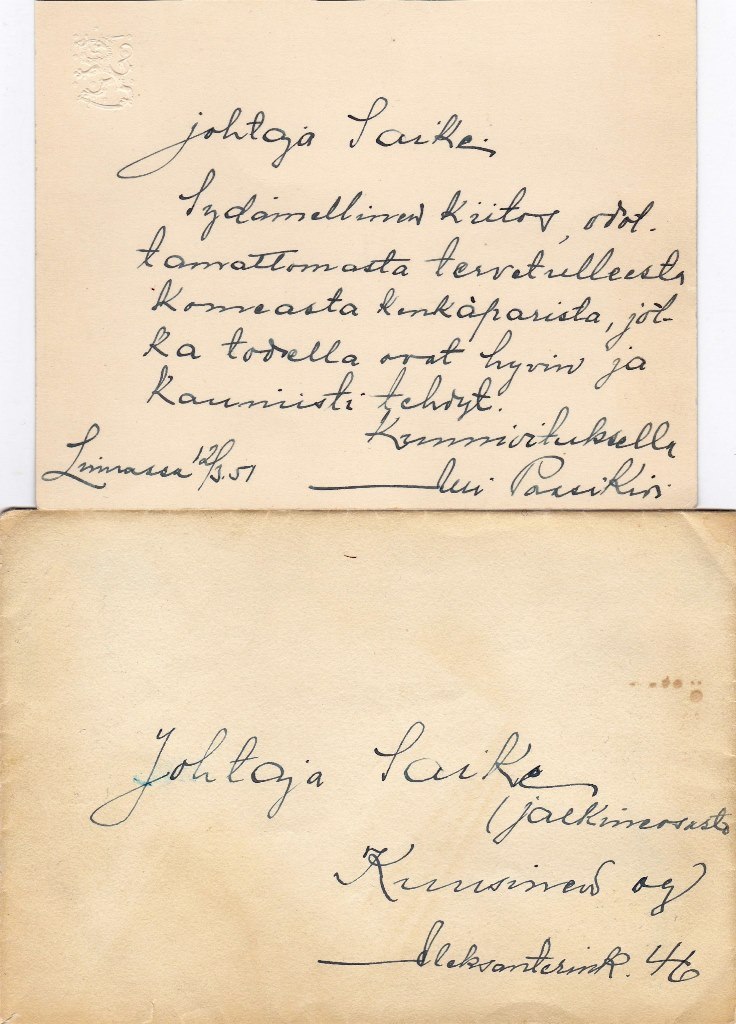 johtaja Saike.
Sydämellinen kiitos, odot-
tamattomasta tervetulleesta
komeasta kenkäparista, jot-
ka todella ovat hyvin ja
kauniisti tehdyt.
Kunnioituksella
Linnassa 12/3.51
Alli Paasikivi
Johtaja Saike
(jalkineosasto
Kuusinen oy
Aleksanterink. 46